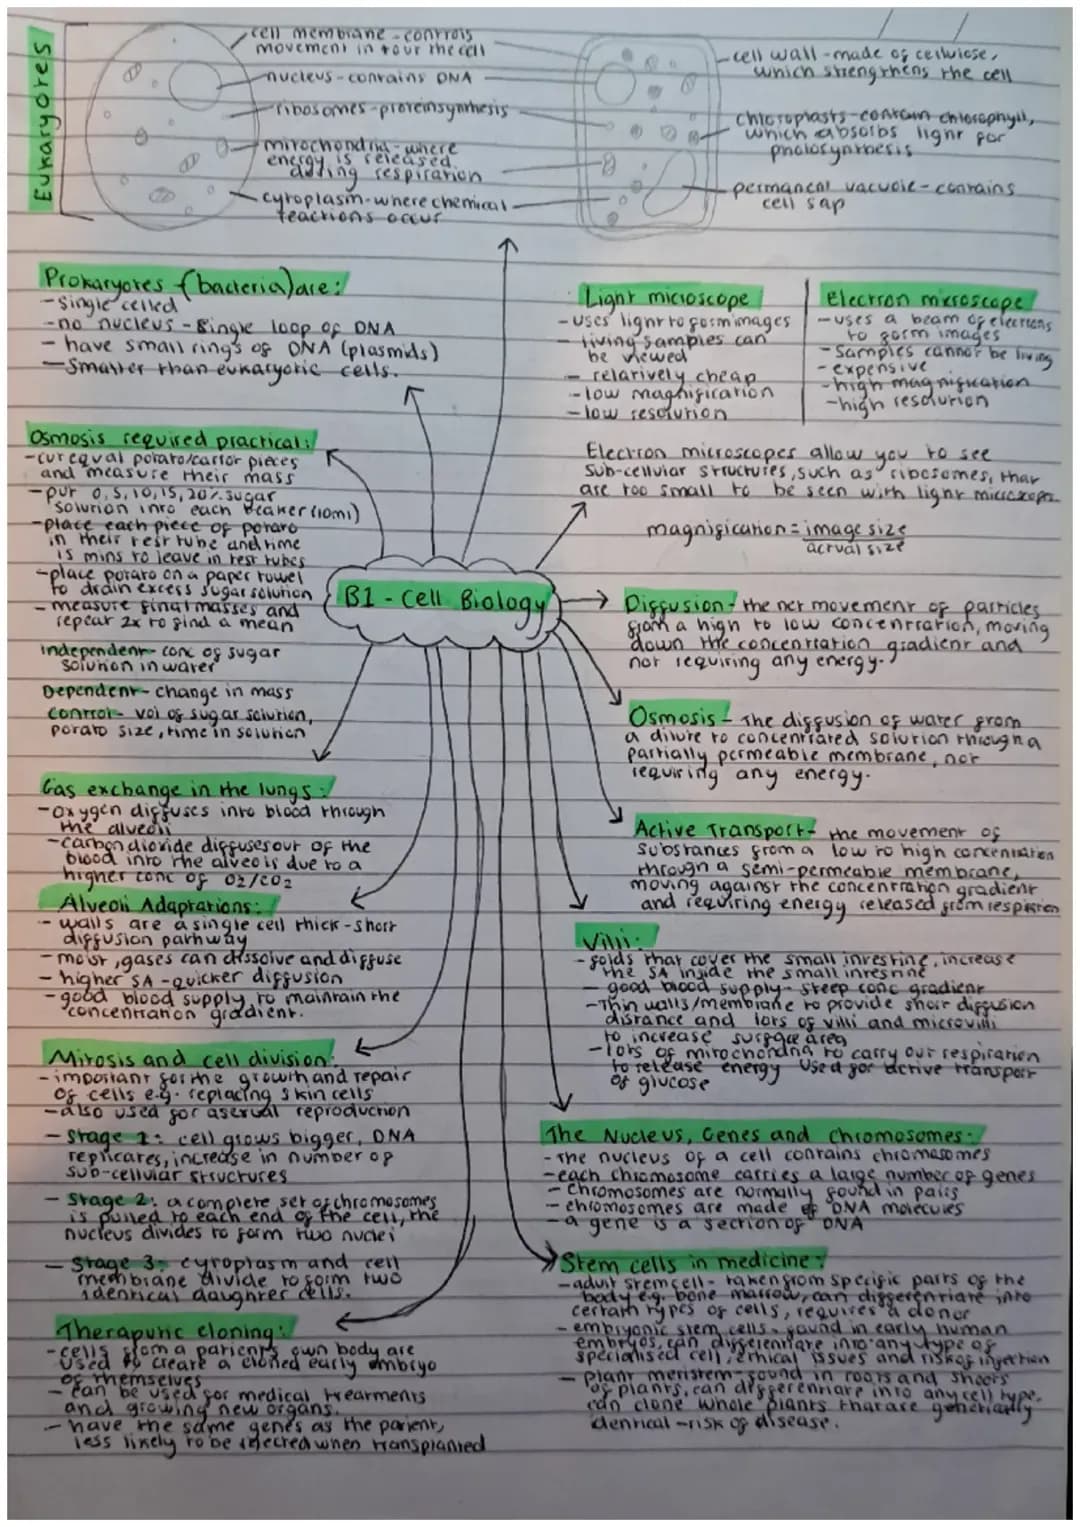 Eukaryotes
cell membrane - controls
movement in + our the cell
nucleus - contains DNA
ribosomes - protein synthesis
mitochondria - where
energy is released
during respiration
cytoplasm - where chemical
reactions occur
cell wall - made of cellulose,
which strengthens the cell
chloroplasts - contain chlorophyll,
which absorbs light for
photosynthesis
permanent vacuole - contains
cell sap
Prokaryotes (bacteria) are:
- single celled
- no nucleus - single loop of DNA
- have small rings of DNA (plasmids)
- Smaller than eukaryotic cells.
Light microscope
- uses light to form images
- living samples can
be viewed
- relatively cheap
- low magnification
- low resolution
Electron microscope
- uses a beam of electrons
to form images
- Samples cannot be living
- expensive
- high magnification
- high resolution
Electron microscopes allow you to see
sub-cellular structures, such as ribosomes, that
are too small to be seen with light microscopes.
magnification = image size
actual size
Osmosis required practical:
- cut equal potato/carrot pieces
and measure their mass
- put 0, 5, 10, 15, 20% sugar
solution into each beaker (10ml)
- place each piece of potato
in their test tube and time
15 mins to leave in test tubes
- place potato on a paper towel
to drain excess sugar solution
- measure final masses and
repeat 2x to find a mean
independent - conc of sugar
solution in water
Dependent - change in mass
control - vol of sugar solution,
potato size, time in solution
B1 - Cell Biology
Diffusion - the net movement of particles
from a high to low concentration, moving
down the concentration gradient and
not requiring any energy.
Osmosis - The diffusion of water from
a dilute to concentrated solution through a
partially permeable membrane, not
requiring any energy.
Active Transport - the movement of
substances from a low to high concentration
through a semi-permeable membrane,
moving against the concentration gradient
and requiring energy released from respiration
Gas exchange in the lungs:
- oxygen diffuses into blood through
the alveoli
- carbon dioxide diffuses out of the
blood into the alveoli is due to a
higher conc of O2/CO2
Alveoli Adaptations:
- walls are a single cell thick - short
diffusion pathway
- moist, gases can dissolve and diffuse
- higher SA - quicker diffusion
- good blood supply to maintain the
concentration gradient.
Villi:
- folds that cover the small intestine, increase
the SA inside the small intestine
- good blood supply - steep conc gradient
- Thin walls/membrane to provide short diffusion
distance and lots of villi and microvilli
to increase surface area
- lots of mitochondria to carry out respiration
to release energy used for active transport
of glucose
Mitosis and cell division:
- important for the growth and repair
of cells e.g. replacing skin cells
- also used for asexual reproduction
- Stage 1: cell grows bigger, DNA
replicates, increase in number of
sub-cellular structures
- Stage 2: a complete set of chromosomes
is pulled to each end of the cell, the
nucleus divides to form two nuclei
- Stage 3: cytoplasm and cell
membrane divide to form two
identical daughter cells.
The Nucleus, Genes and Chromosomes:
- the nucleus of a cell contains chromosomes
- each chromosome carries a large number of genes
- chromosomes are normally found in pairs
- chromosomes are made of DNA molecules
- a gene is a section of DNA
Stem cells in medicine:
- adult stem cell - taken from specific parts of the
body e.g. bone marrow, can differentiate into
certain types of cells, requires a donor
- embryonic stem cells - found in early human
embryos, can differentiate into any type of
specialised cell, ethical issues and risk of injection
- plant meristem - found in roots and shoots
of plants, can differentiate into any cell type.
can clone whole plants that are genetically
identical - risk of disease.
Theraputic cloning:
- cells from a patient's own body are
used to create a cloned early embryo
of themselves
- can be used for medical treatments
and growing new organs.
- have the same genes as the patient,
less likely to be rejected when transplanted